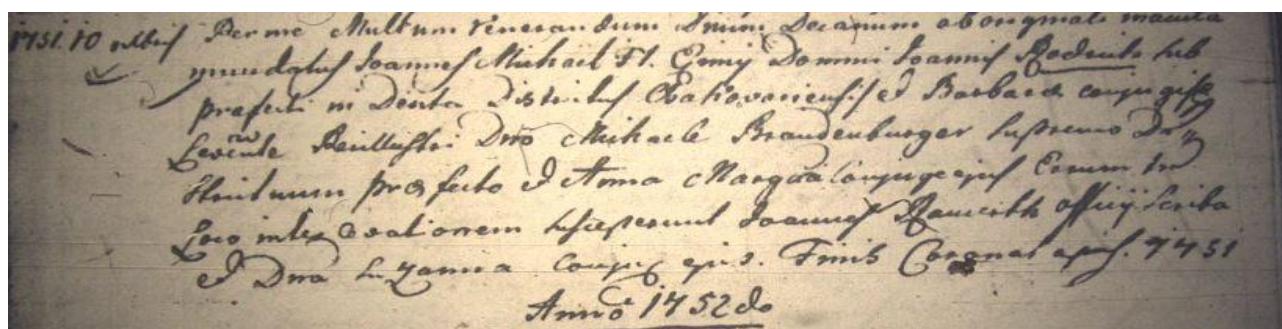 1751. 10 xbris Per me Multum Venerandum Dnum Decanum ab originali macula
mundatus Joannes Michael Fl. Domini Joannis sub
praefecti in Denta Districtus Csakovariensis et Barbara conjugis
Levante Perillustri Dno Michaele Brandenburger supremo Di
strictuum praefecto et Anna Margar conjuge ejus Eorum
Loco susceperunt Joannes officij scriba
et Dna Suzanna conjux ejus. Finis Coronat opus. 1751
Anno 1752do